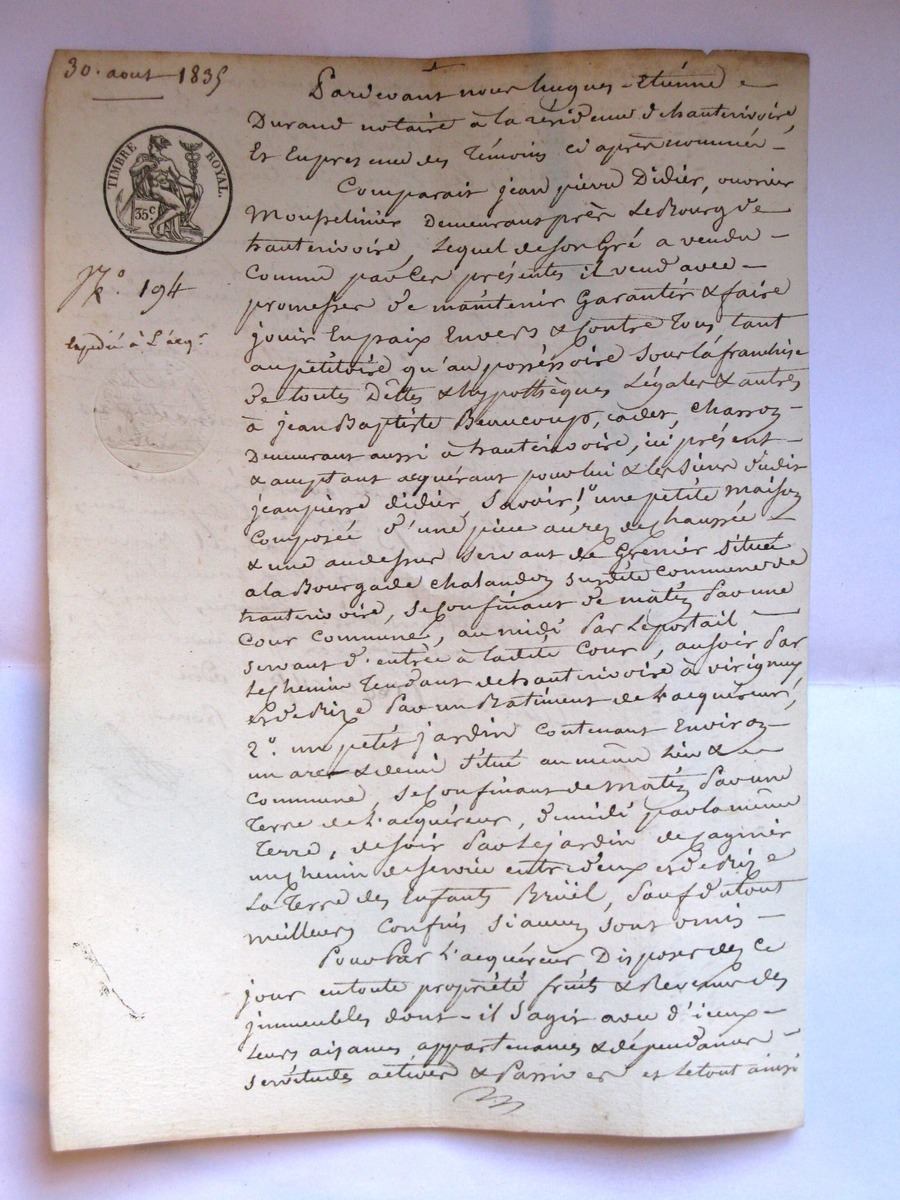 30. aout 1835
TIMBRE ROYAL.
35c.
No. 194
Expédié à L'acqr.
Pardevant nous hugues-Etiénne
Durand notaire à la résidence d'hauterivoire
Et En presence des Témoins ci après nommés
Comparait jean pierre Didier, ouvrier
Mousselinier Demeurant près Le Bourg de
hauterivoire, Lequel de son Gré a vendu
Comme par Ces présentes il vend avec
promesses de maintenir Garantir & faire
jouir En paix Envers & Contre Tous tant
au pétitoire qu'au posséssoire sous la franchise
De toutes Dêttes & hypothèques Légales & autres
à jean Baptiste Beaucoup, cadet, Charron
Demeurant aussi à hauterivoire, ici présent
& acceptant acquérant pour lui & les siens dudit
jean pierre didier, Savoir, 1o. une petite maison
Composée d'une pièce au rez de chaussée
& une au dessus servant de Grenier située
a la Bourgade Chalandon susdite commune de
hauterivoire, se confinant de matin Par une
Cour Commune, au midi Par Le portail
servant d'entrée à ladite Cour, au soir Par
Le chemin Tendant de hauterivoire à virigneux
et de Bize Par un Bâtiment de L'acquéreur,
2o. un petit jardin Contenant Environ
un are & demi situé au même Lieu &
Commune, se confinant de matin Par une
Terre de L'acquéreur, de midi par la même
Terre, de soir Par Le jardin de Jagnier
un chemin de service entre deux et de Bize
La Terre des Enfants Brüel, Sauf du tout
meilleurs Confins si aucuns sont omis
Pour Par L'acquéreur Disposer dès ce
jour en toute propriété fruits & Revenus des
jmmeubles dont il s'agit avec d'iceux
Leurs aisances appartenances & dépendances
servitudes actives & Passives et le tout ainsi